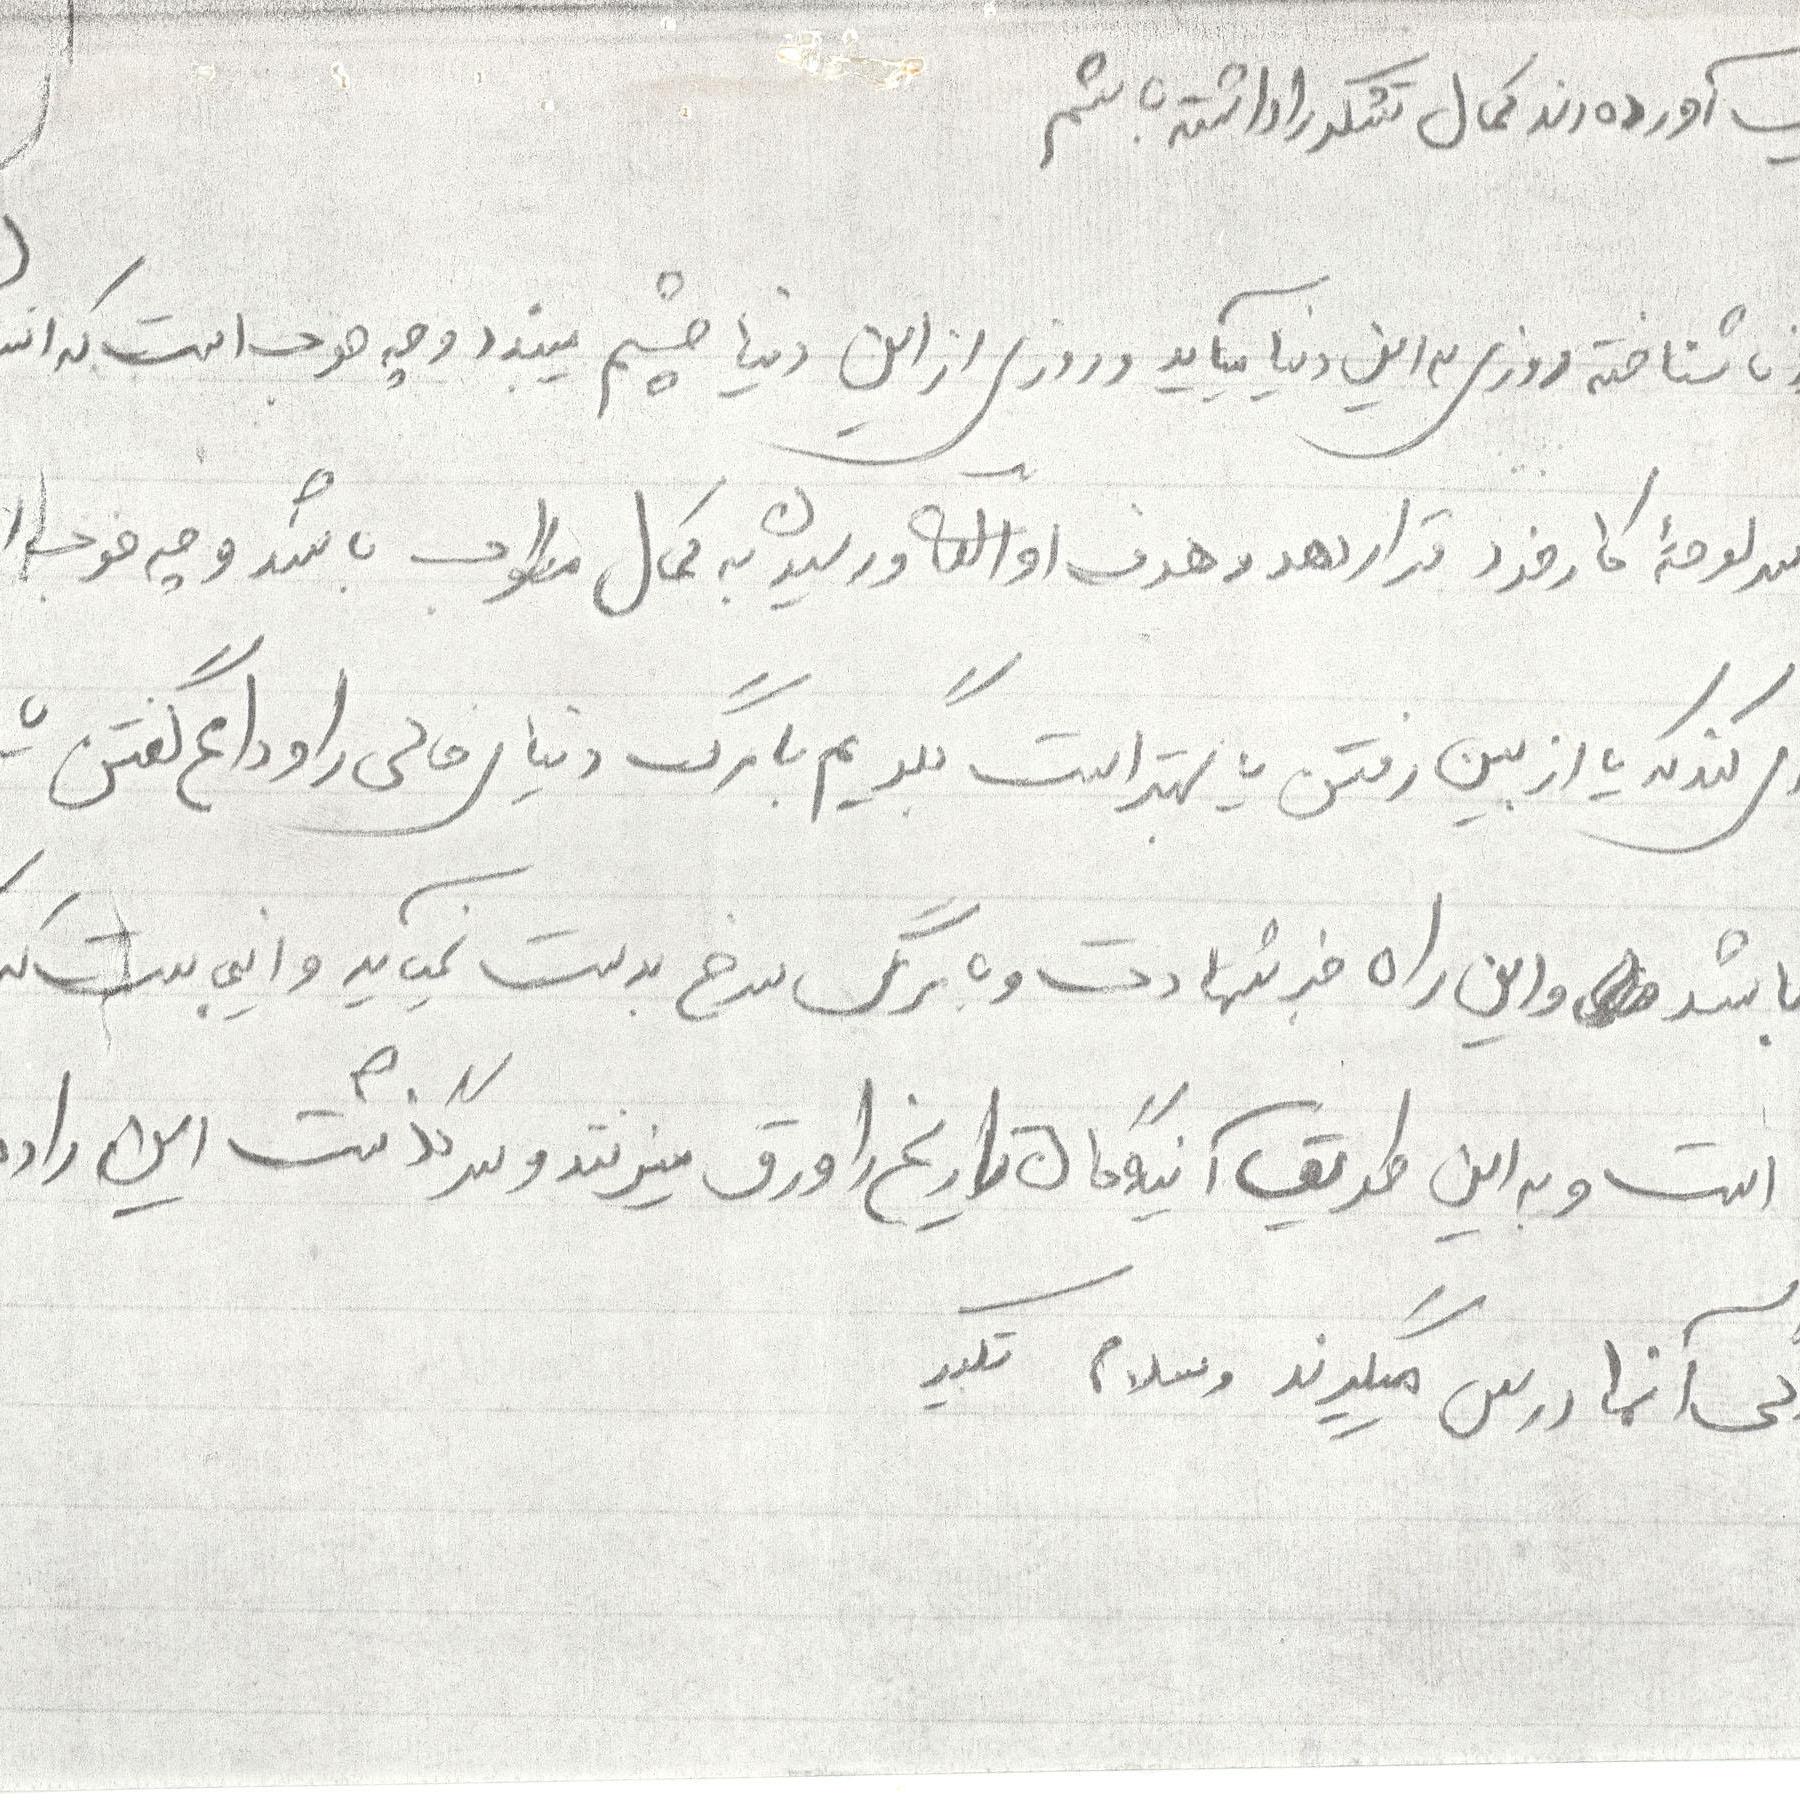 آورده اند کمال تشکر را داشته باشم
ناشناخته روزی به این دنیا میآید و روزی از این دنیا چشم میبندد و چه خوب است که
سرلوحهٔ کار خود قرار دهد و هدف او الله و رسیدن به کمال مطلوب باشد و چه خوب
کند که با از بین رفتن یا بهتر است بگویم با مرگ دنیای فانی را وداع گفتن
باشد و این راه جز شهادت و با مرگ سرخ بدست نمیآید و اینجاست که
است و به این طریق آیندگان تاریخ را ورق میزنند و سرگذشت این
آنها درس میگیرند وسلام تکبیر